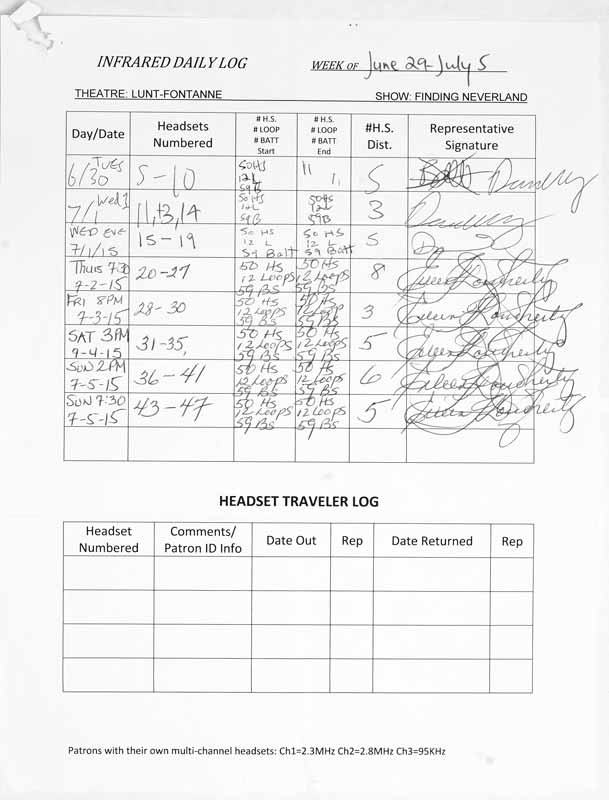 INFRARED DAILY LOG
WEEK OF June 29-July 5
THEATRE: LUNT-FONTANNE
SHOW: FINDING NEVERLAND
Day/Date Headsets Numbered # H.S. # LOOP # BATT Start # H.S. # LOOP # BATT End #H.S. Dist. Representative Signature
TUES 6/30 5-10 50HS 12L 59B 11 1, 5
Wed 1 7/1 11, 13, 14 50HS 12L 59B 50HS 12L 59B 3
WED EVE 7/1/15 15-19 50 HS 12 L 59 Batt 50 HS 12 L 59 Batt 5
Thurs 7:30 7-2-15 20-27 50 HS 12 Loops 59 BS 50 HS 12 Loops 59 BS 8 Eileen Dougherty
FRI 8PM 7-3-15 28-30 50 HS 12 Loops 59 BS 50 HS 12 Loop 59 BS 3 Eileen Dougherty
SAT 3PM 7-4-15 31-35, 50 HS 12 Loops 59 BS 50 HS 12 Loops 59 BS 5 Eileen Dougherty
SUN 2PM 7-5-15 36-41 50 HS 12 Loops 59 BS 50 HS 12 Loops 59 BS 6 Eileen Dougherty
SUN 7:30 7-5-15 43-47 50 HS 12 Loops 59 BS 50 HS 12 Loops 59 BS 5 Eileen Dougherty
HEADSET TRAVELER LOG
Headset Numbered Comments/ Patron ID Info Date Out Rep Date Returned Rep
Patrons with their own multi-channel headsets: Ch1=2.3MHz Ch2=2.8MHz Ch3=95KHz